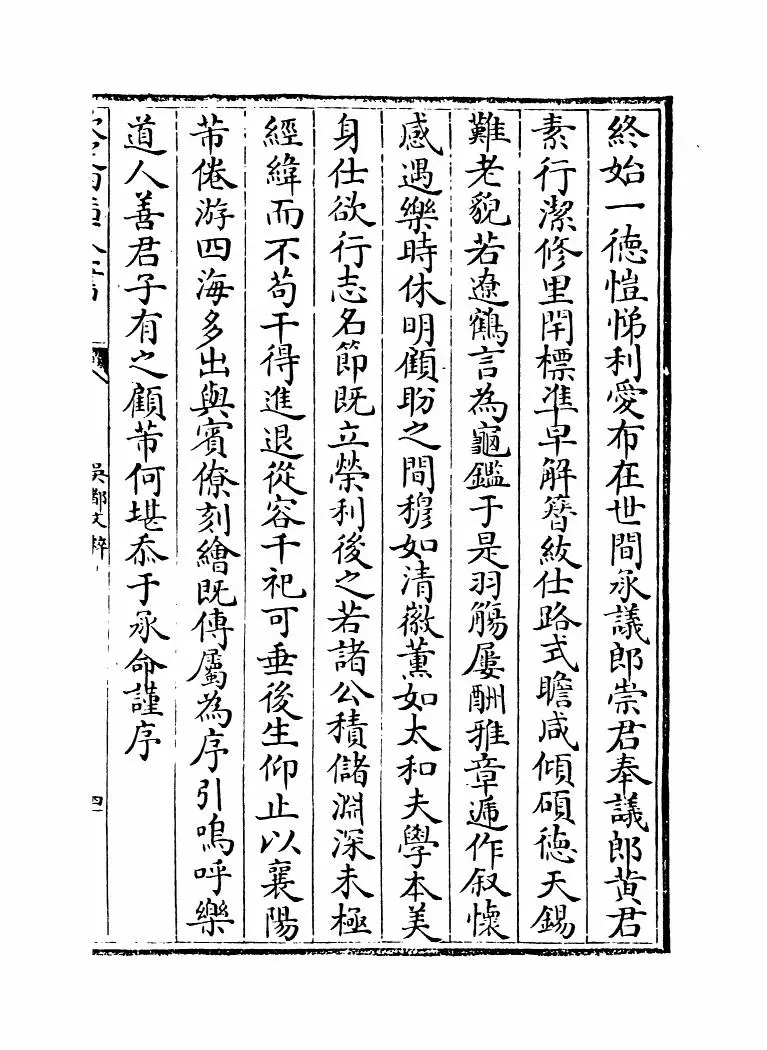 終始一徳愷悌利愛布在世間承議郎崇君奉議郎黄君
素行潔修里閈標準早解簪紱仕路式瞻咸傾碩徳天錫
難老貌若遼鶴言為龜鑑于是羽觴屢酬雅章遞作叙懷
感遇樂時休明顧盼之間穆如清徽薫如太和夫學本美
身仕欲行志名節既立榮利後之若諸公積儲淵深未極
經緯而不苟干得進退從容千祀可垂後生仰止以襄陽
芾倦游四海多出與賓僚刻繪既傳屬為序引嗚呼樂
道人善君子有之顧芾何堪忝于承命謹序
吳都文粹
四